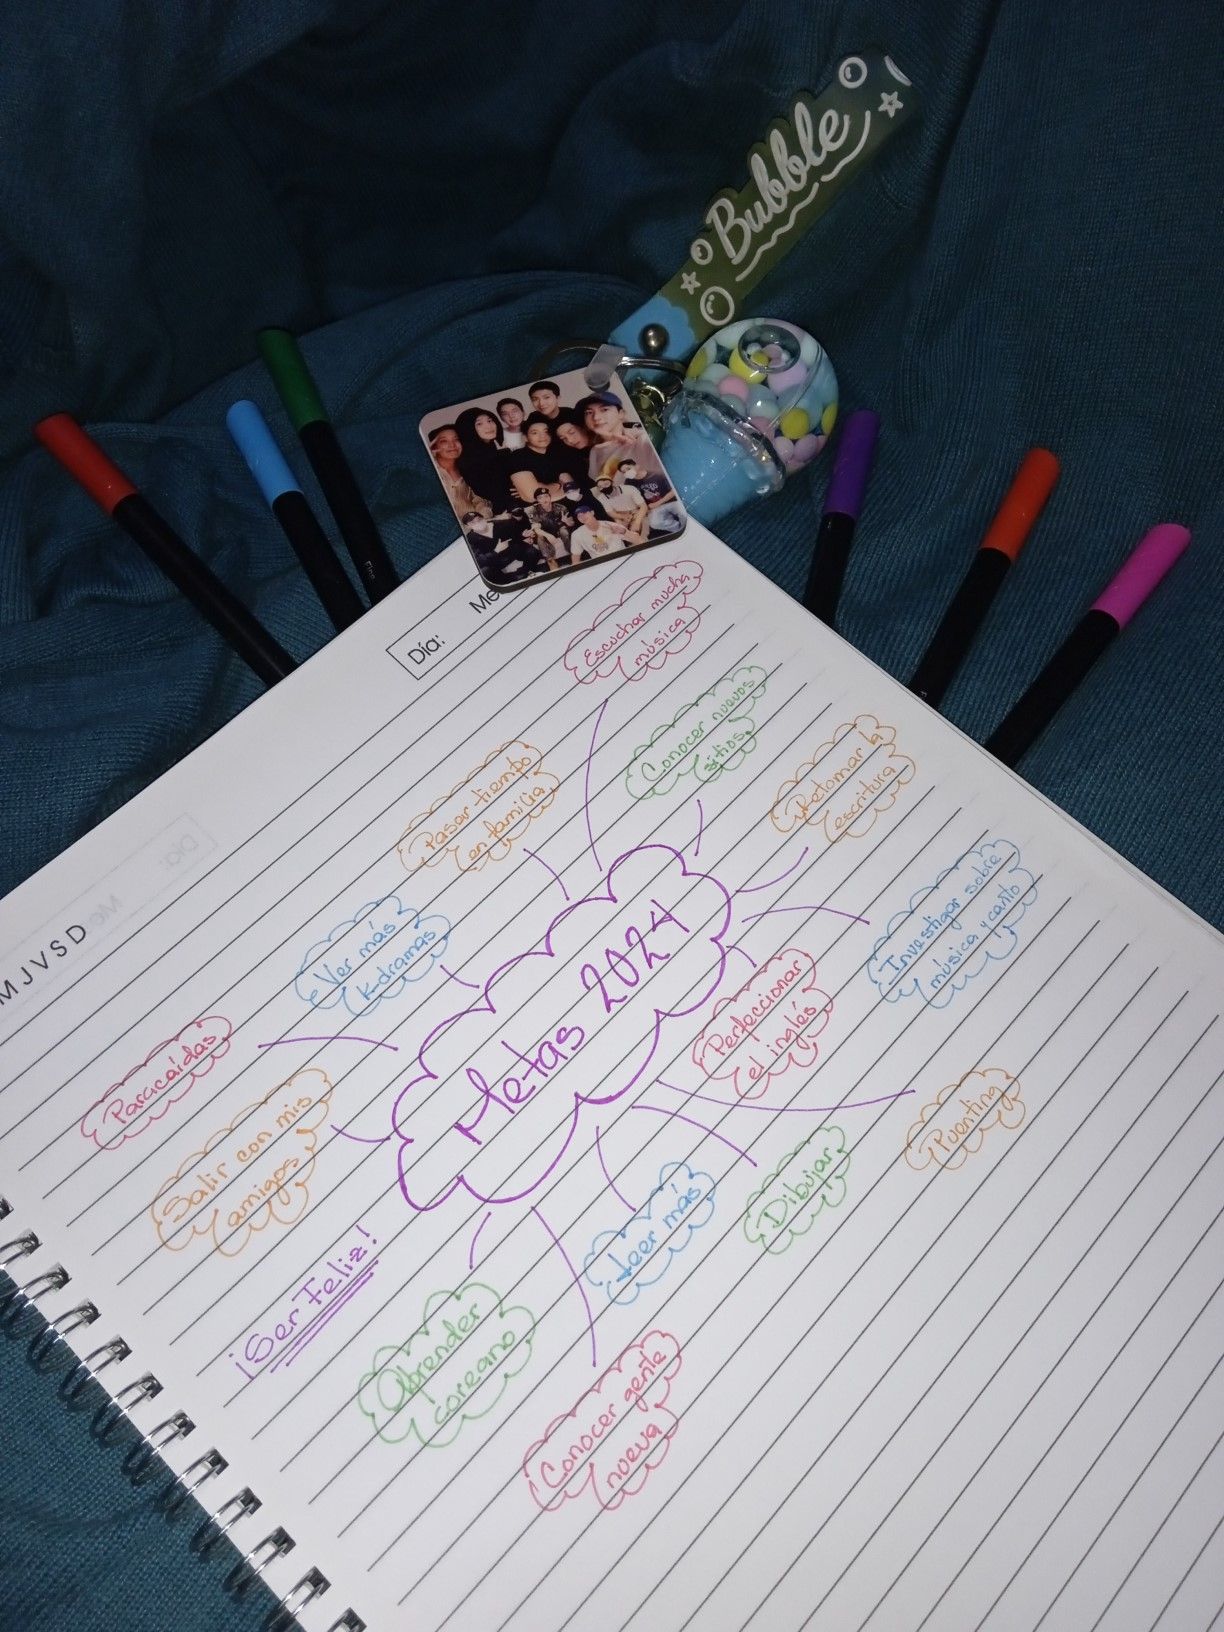 Bubble
Día:
Me
Escuchar mucha
música
Conocer nuevos
sitios
Retomar la
escritura
Pasar tiempo
en familia
Investigar sobre
música y canto
Ver más
K-dramas
Metas 2024
Perfeccionar
el inglés
Paracaídas
Salir con mis
amigos
Puenting
Dibujar
Leer más
¡Ser Feliz!
Aprender
coreano
Conocer gente
nueva
M J V S D